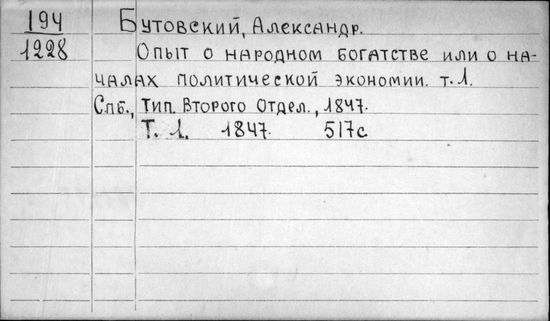 194 Бутовский, Александр.
1228 Опыт о народном богатстве или о на-
чалах политической экономии. т. 1.
Спб., Тип. Второго Отдел., 1847.
Т. 1. 1847. 517с